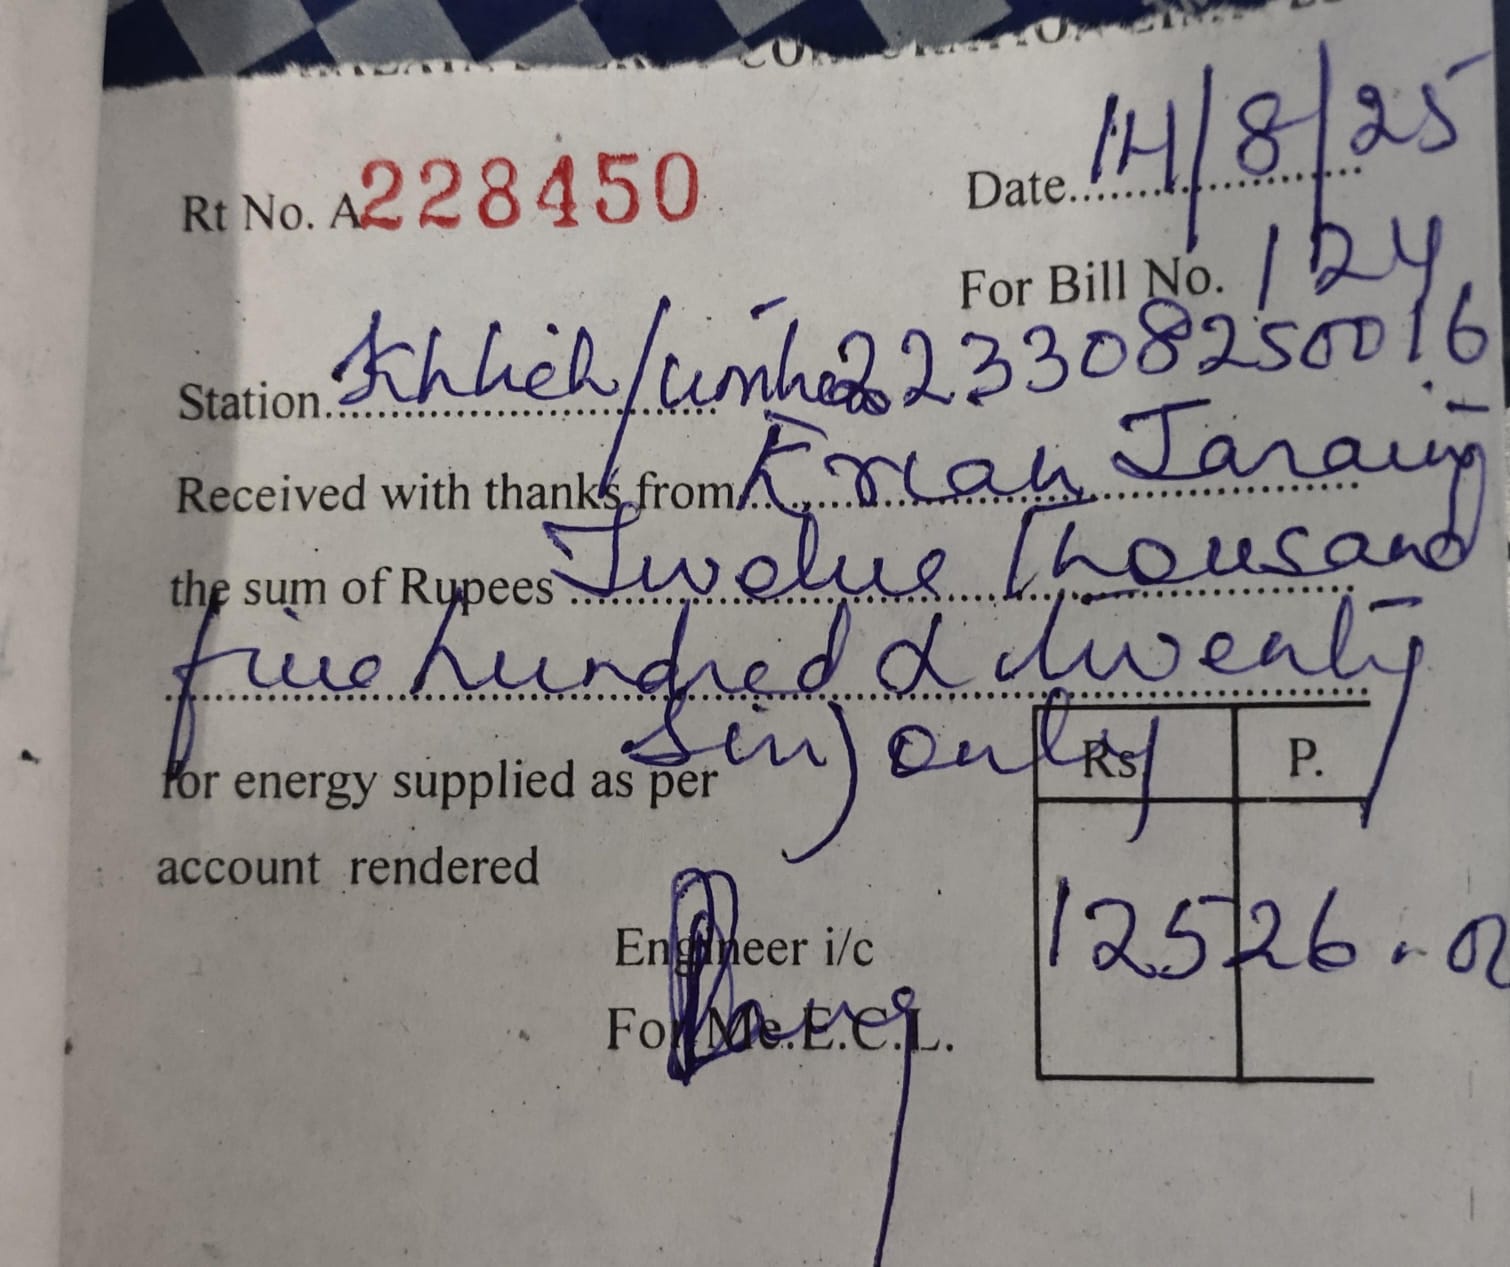 Rt No. A228450
Date 14/8/25
For Bill No. 124
Station Khlieh/ 223308250016
Received with thanks from Tariang
the sum of Rupees Twelve Thousand
five hundred & twenty
six) only
for energy supplied as per
account rendered
Rs P.
12526.00
Engineer i/c
For Me.E.C.L.